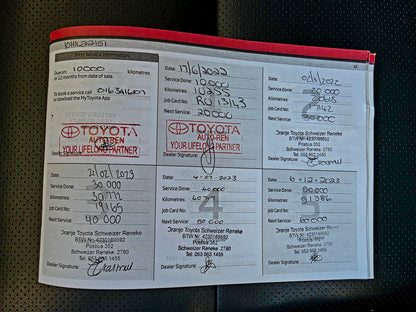 First Service Information
Due on: 10000 kilometres
or 12 months from date of sale.
To book a service call
or download the MyToyota App
TOYOTA
AUTO-BEN
YOUR LIFELONG PARTNER
Dealer Signature:
Date: 17/6/2022
Service Done: 10000
Kilometres: 10253
Job Card No: RO 13143
Next Service: 20000
TOYOTA
AUTO-BEN
YOUR LIFELONG PARTNER
Dealer Signature:
Date:
Service Done: 20 000
Kilometres:
Job Card No:
Next Service: 30000
Oranje Toyota Schweizer Reneke
BTW Nr: 4220189692
Posbus 352
Schweizer Reneke 2780
Tel: 053 963 1455
Dealer Signature:
Date: 21/02/2023
Service Done: 30 000
Kilometres:
Job Card No: 19165
Next Service: 40 000
Oranje Toyota Schweizer Reneke
BTW Nr: 4220189692
Posbus 352
Schweizer Reneke 2780
Tel: 053 963 1455
Dealer Signature:
4
Date: 4-07-2023
Service Done: 40 000
Kilometres:
Job Card No:
Next Service: 50 000
Oranje Toyota Schweizer Reneke
BTW Nr: 4220189692
Posbus 352
Schweizer Reneke 2780
Tel: 053 963 1455
Dealer Signature:
Date: 6-12-2023
Service Done: 50000
Kilometres: 51386
Job Card No:
Next Service: 60000
Oranje Toyota Schweizer Reneke
BTW Nr: 4220189692
Posbus 352
Schweizer Reneke 2780
Tel: 053 963 1455
Dealer Signature: